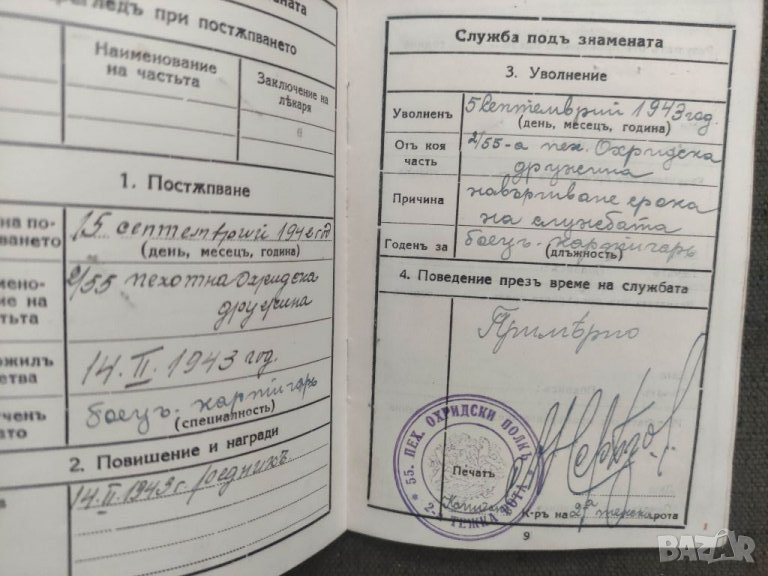 ената
регледъ при постѫпването
Наименование на частьта
Заключение на лѣкаря
1. Постѫпване
на по-
ването
15. септемврий
(день, месецъ, година)
мено-
ие на
тьта
2/55 пехотна Охридска
дружина
ожилъ
етва
14. II. 1943 год.
ученъ
ато
боецъ-
(специалность)
2. Повишение и награди
14. II. 1943 г. редникъ
Служба подъ знамената
3. Уволнение
Уволненъ
5 септемврий 1943 год.
(день, месецъ, година)
Отъ коя часть
2/55-а пех. Охридска
дружина
Причина
навършване срока
на службата
Годенъ за
боецъ-
(длъжность)
4. Поведение презъ време на службата
Примѣрно
55. ПЕХ. ОХРИДСКИ ПОЛКЪ
2. ТЕЖКА РОТА
Печатъ
К-ръ на 2ра тежка рота
9
BAZAR